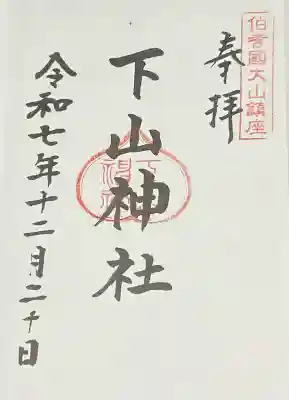 伯耆國大山鎮座
奉拝
下山神社
令和七年十二月二十日